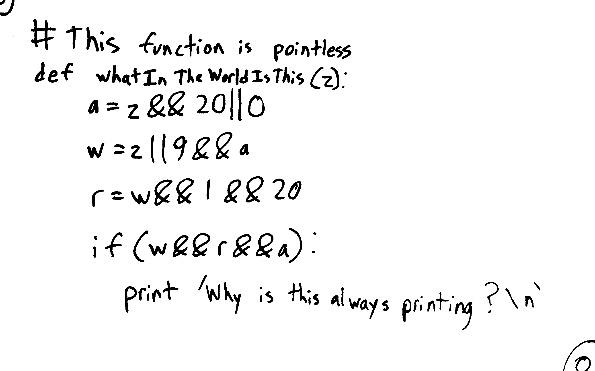 # This function is pointless
def whatInTheWorldIsThis(z):
a = z && 20||0
w = z||9 && a
r = w && 1 && 20
if (w && r && a):
print 'Why is this always printing?\n'